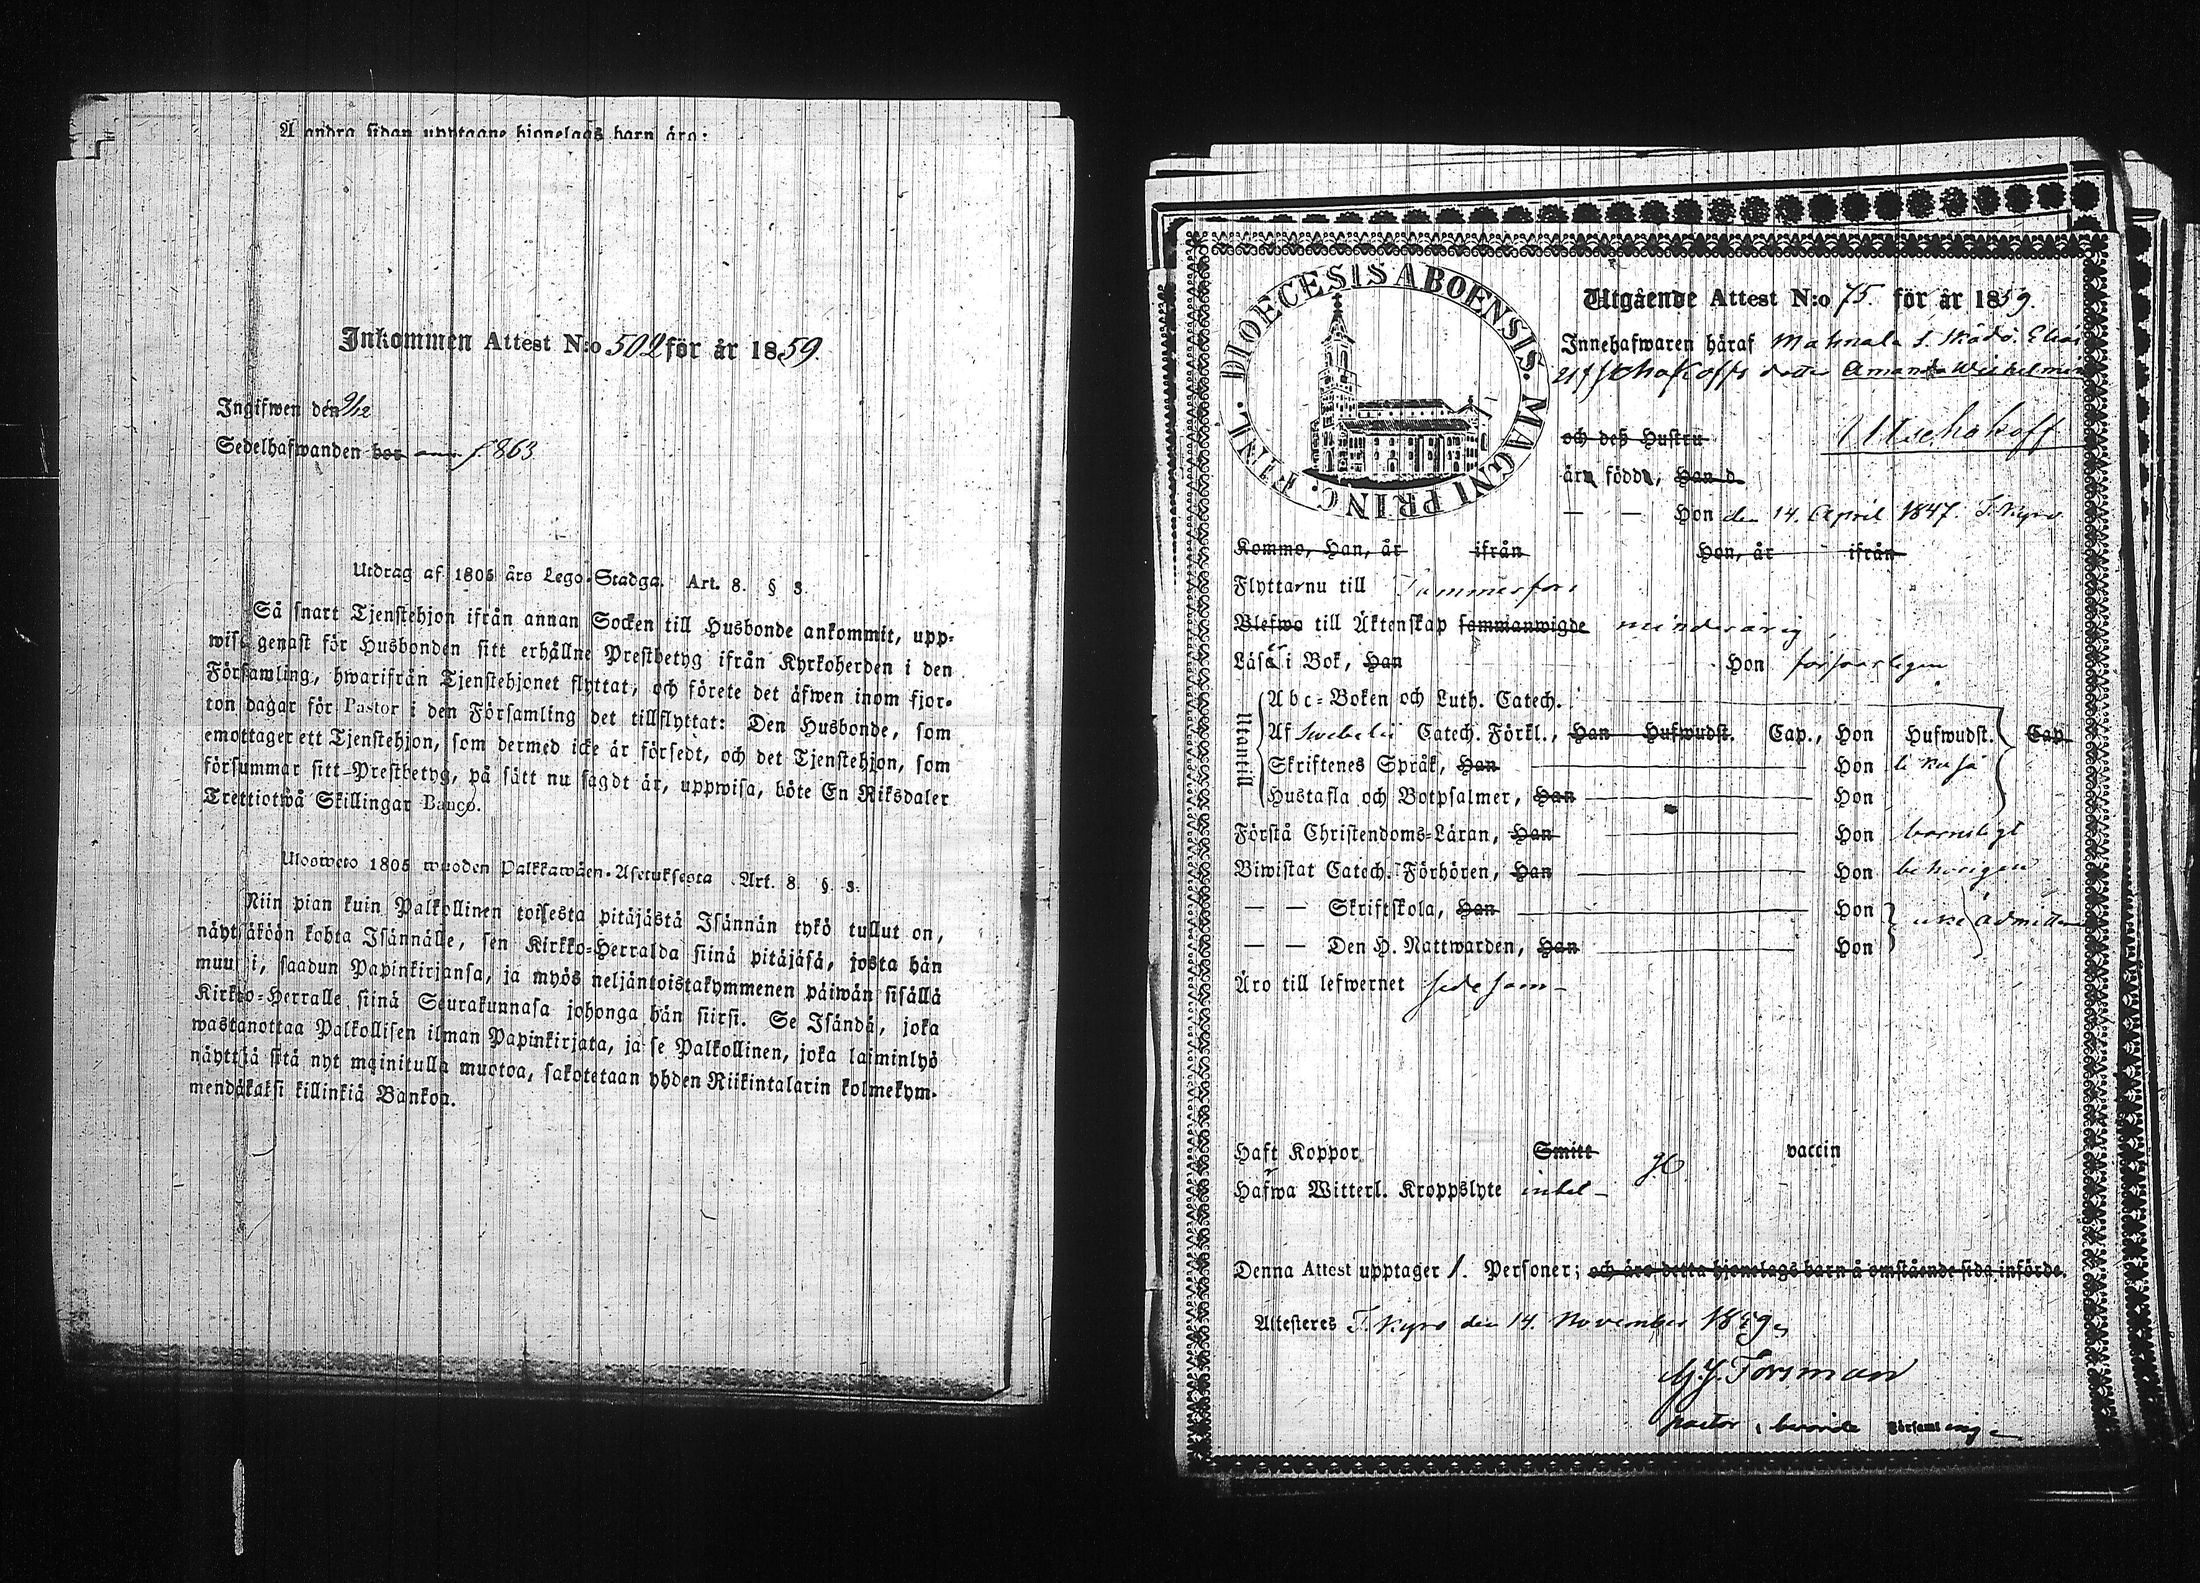 Å andra sidan upptagne hjonelags barn äro:
Inkommen Attest N:o 502 för år 1859.
Ingifwen den 9/12
Sedelhafwanden bor f. 863
Utdrag af 1805 års Lego-Stadga. Art. 8. § 3.
Så snart Tjenstehjon ifrån annan Socken till Husbonde ankommit, upp-
wise genast för Husbonden sitt erhållne Prestbetyg ifrån Kyrkoherden i den
Församling, hwarifrån Tjenstehjonet flyttat, och förete det äfwen inom fjor-
ton dagar för Pastor i den Församling det tillflyttat: Den Husbonde, som
emottager ett Tjenstehjon, som dermed icke är försedt, och det Tjenstehjon, som
försummar sitt Prestbetyg, på sätt nu sagdt är, uppwisa, böte En Riksdaler
Trettiotwå Skillingar Banco.
Ulosweto 1805 wuoden Palkkawäen-Asetuksesta Art. 8. §. 3.
Niin pian kuin Palkollinen toisesta pitäjästä Isännän tykö tullut on,
näyttäköön kohta Isännälle, sen Kirkko-Herralda siinä pitäjäsä, josta hän
muutti, saadun Papinkirjansa, ja myös neljäntoistakymmenen päiwän sisällä
Kirkko-Herralle siinä Seurakunnasa johonga hän siirsi. Se Isändä, joka
wastanottaa Palkollisen ilman Papinkirjata, ja se Palkollinen, joka laiminlyö
näyttää sitä nyt mainitulla muotoa, sakotetaan yhden Riikintalarin kolmekym-
mendäkaksi killinkiä Bankoa.
DIOECESIS ABOENSIS. MAGNI PRINC. FINL.
Utgående Attest N:o 75 för år 1859.
Innehafwaren häraf
dotter Amanda Wilhelmin
och deß Hustru Utschakoff
äro född, Han d.
— — Hon den 14. April 1847. T. Kyro
Kommo, Han, år ifrån Hon, år ifrån
Flyttar nu till Tammerfors
Blefwo till Äktenskap sammanwigde minderårig
Läsa i Bok, Han Hon försvarligen
Utantill
Abc-Boken och Luth. Catech.
Af Swebelii Catech. Förkl., Han Hufwudst. Cap., Hon Hufwudst. Cap.
Skriftenes Språk, Han Hon likaså
Hustafla och Botpsalmer, Han Hon
Förstå Christendoms-Läran, Han Hon barnsligt
Biwistat Catech. Förhören, Han Hon behörigen
— — Skriftskola, Han Hon
— — Den H. Nattwarden, Han Hon
Äro till lefwernet sedesam
Haft Koppor Smitt vaccin
Hafwa Witterl. Kroppslyte intet
Denna Attest upptager 1. Personer; och äro detta hjonelags barn å omstående sida införde.
Attesteres T. Kyro den 14. November 1859.
Forsman
pastor i Församling